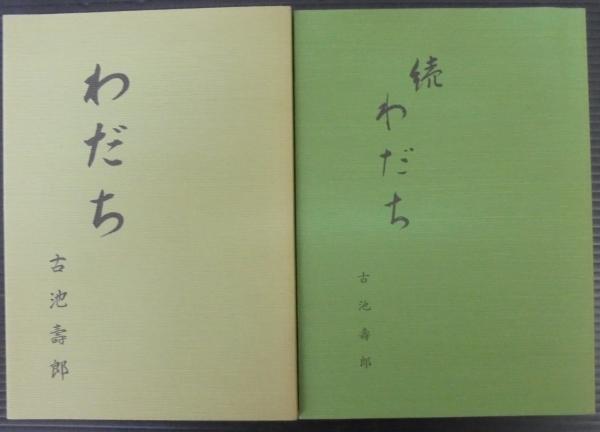 わだち
古池壽郎
続
わだち
古池壽郎